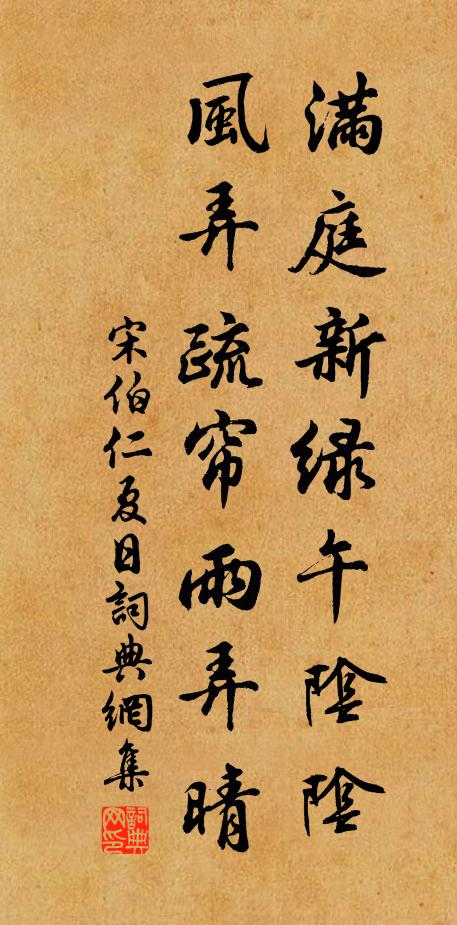 滿庭新綠午陰陰
風弄疏帘雨弄晴
宋伯仁夏日詞典網集
詞典网印